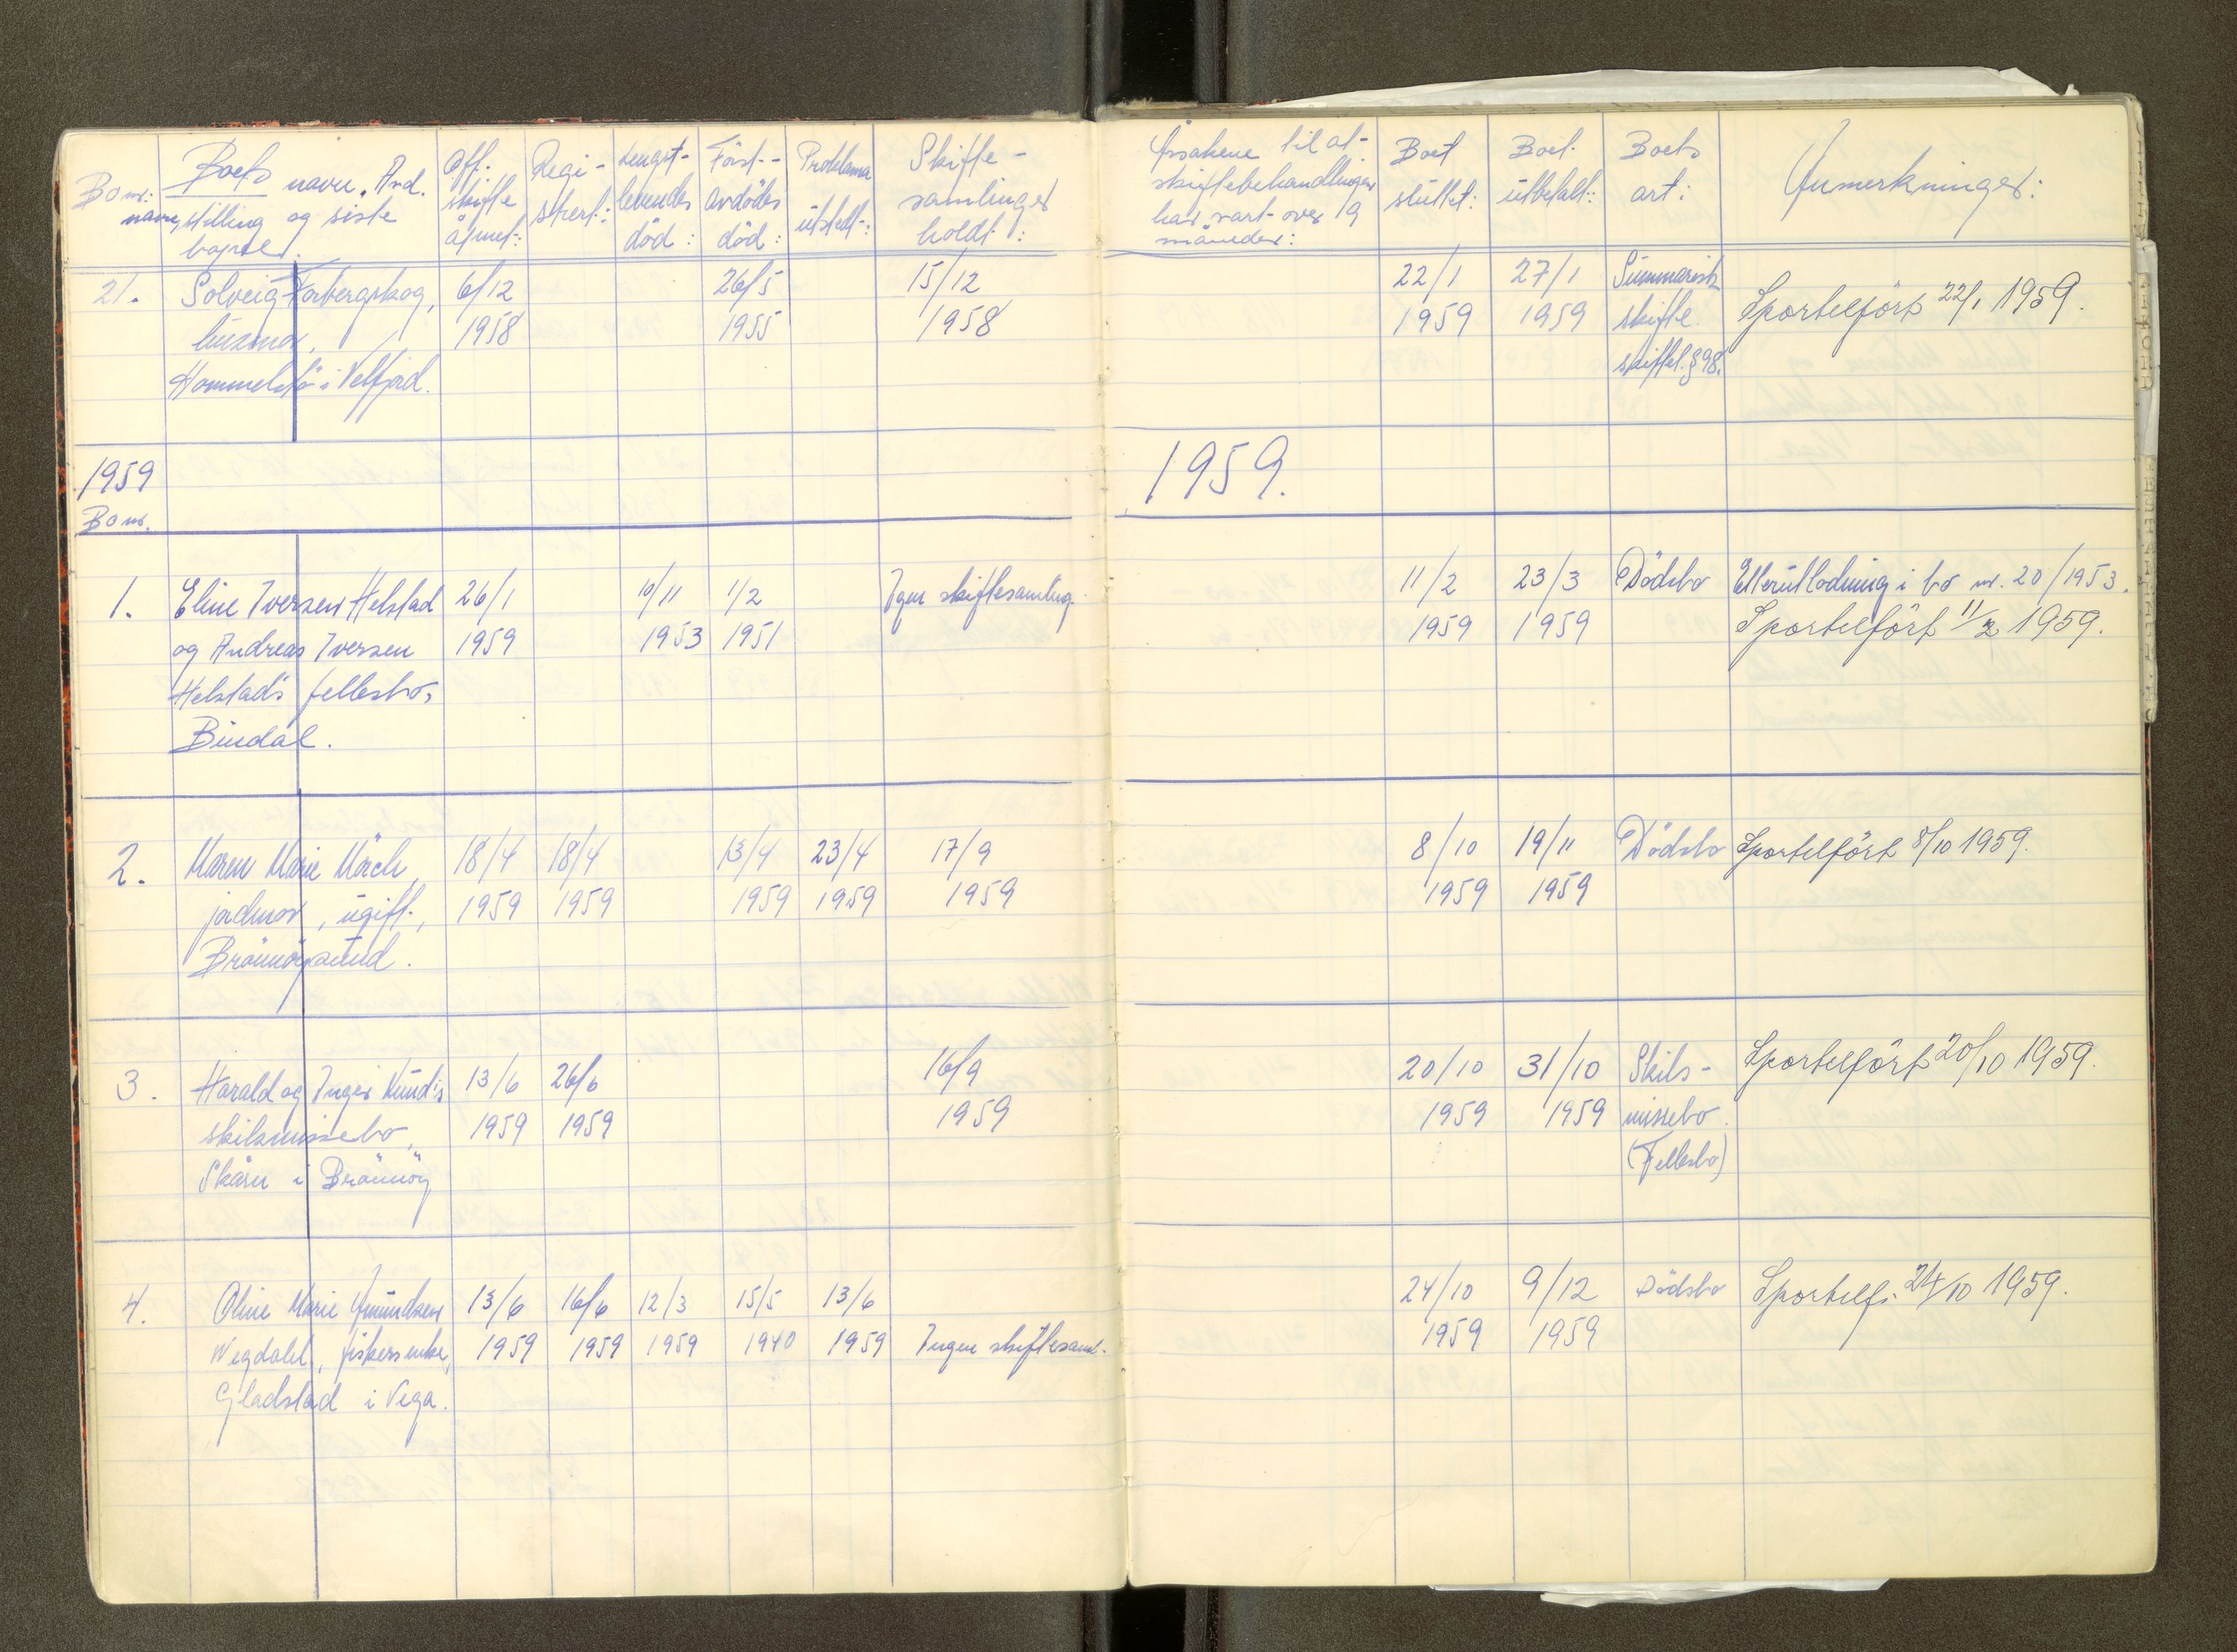 Bo nr:
Boets navn. And.
navn, stilling og siste
bopæl.
Off.
skifte
åpnet:
Regi-
strert:
Lengst-
levendes
død:
Först-
avdödes
død:
Proklama
utstedt:
Skifte-
samlinger
holdt:
Årsakene til at
skiftebehandlingen
har vart over 9
måneder:
Boet
sluttet:
Boet
utbetalt:
Boets
art:
Anmerkninger:
21. Solveig Torbergskog, 6/12 26/5 15/12 22/1 27/1 Summarisk
husmor, 1958 1955 1958 1959 1959 skifte. Sportelfört 22/1 1959.
Hommelstø i Velfjord. skiftel. § 98.
1959 1959.
Bo nr.
1. Eline Iversen Helstad 26/1 10/11 1/2 Igen skiftesamling. 11/2 23/3 Dödsbo Etterutlodning i bo nr. 20/1953.
og Andreas Iversen 1959 1953 1951 1959 1959 Sportelfört 11/2 1959.
Helstad's fellesbo,
Bindal.
2. Maren Marie Mörch, 18/4 18/4 13/4 23/4 17/9 8/10 19/11 Dödsbo Sportelfört 8/10 1959.
jordmor, ugift, 1959 1959 1959 1959 1959 1959 1959
Brönnöysund.
3. Harald og Inger Kund's 13/6 26/6 16/9 20/10 31/10 Skils- Sportelfört 20/10 1959.
skilsmissebo, 1959 1959 1959 1959 1959 missebo.
Skårn i Brönnöy (Fellesbo)
4. Oline Marie Amundsen 13/6 16/6 12/3 15/5 13/6 24/10 9/12 Dödsbo Sportelf. 24/10 1959.
Wegdahl, fiskerenke, 1959 1959 1959 1940 1959 Ingen skiftesaml. 1959 1959
Gladstad i Vega.